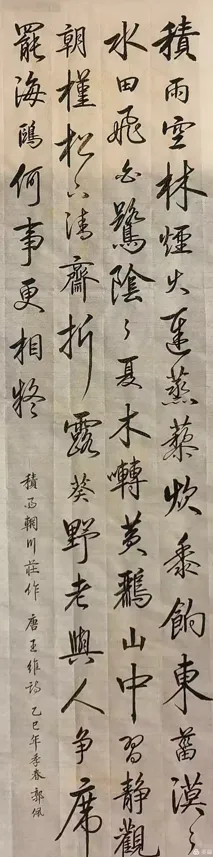 積雨空林煙火遲蒸藜炊黍餉東菑漠〻
水田飛白鷺陰〻夏木囀黄鸝山中習静觀
朝槿松下清齋折露葵野老與人争席
罷海鷗何事更相疑
積雨輞川莊作 唐王維詩 乙巳年季春 郭佩